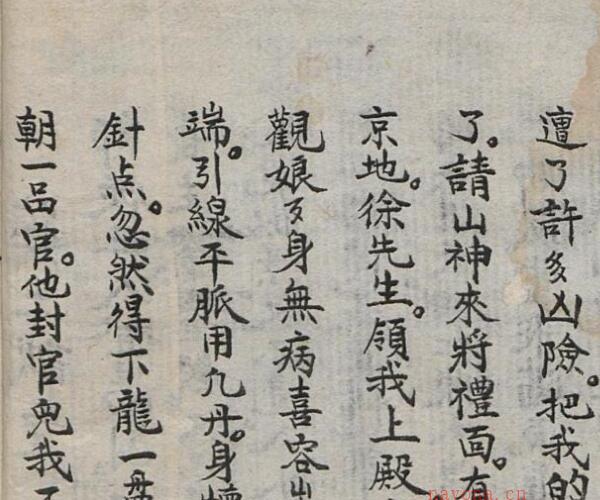 遭了許多凶險。把我的
了。請山神來將禮面。有
京地。徐先生。領我上殿
觀娘娘身無病喜容
端。引線平脈用九丹。身
針点。忽然得下龍一
朝一品官。他封官兒我